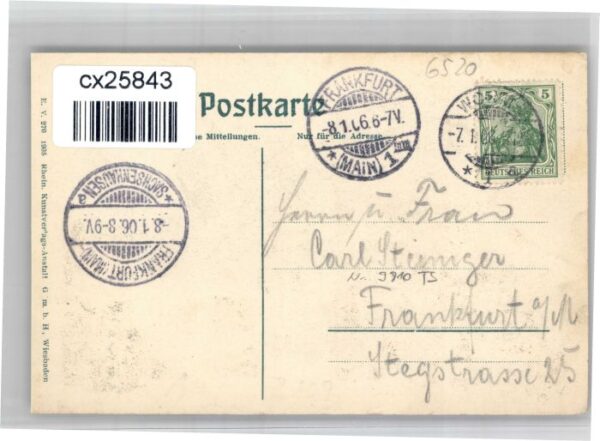 cx25843
6520
Postkarte
he Mitteilungen.
Nur für die Adresse.
FRANKFURT
-8.1.06.6-7V.
*(MAIN) 1
WO
-7.1.
5
DEUTSCHES REICH
*SACHSENHAUSEN
-8.1.06.8-9V.
FRANKFURT (MAIN)-
E. V. 270 1935 Rhein. Kunstverlags-Anstalt G. m. b. H, Wiesbaden
Herrn u. Frau
Carl
3910 TS
Frankfurt a/M
Stegstrasse 25